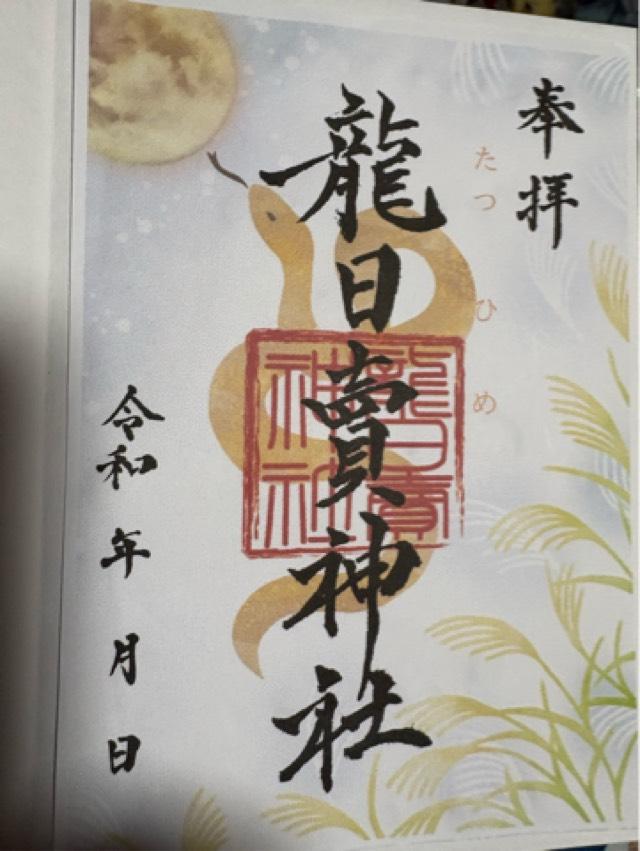 奉拝
龍日賣神社
たつ ひ め
龍日賣神社
令和 年 月 日